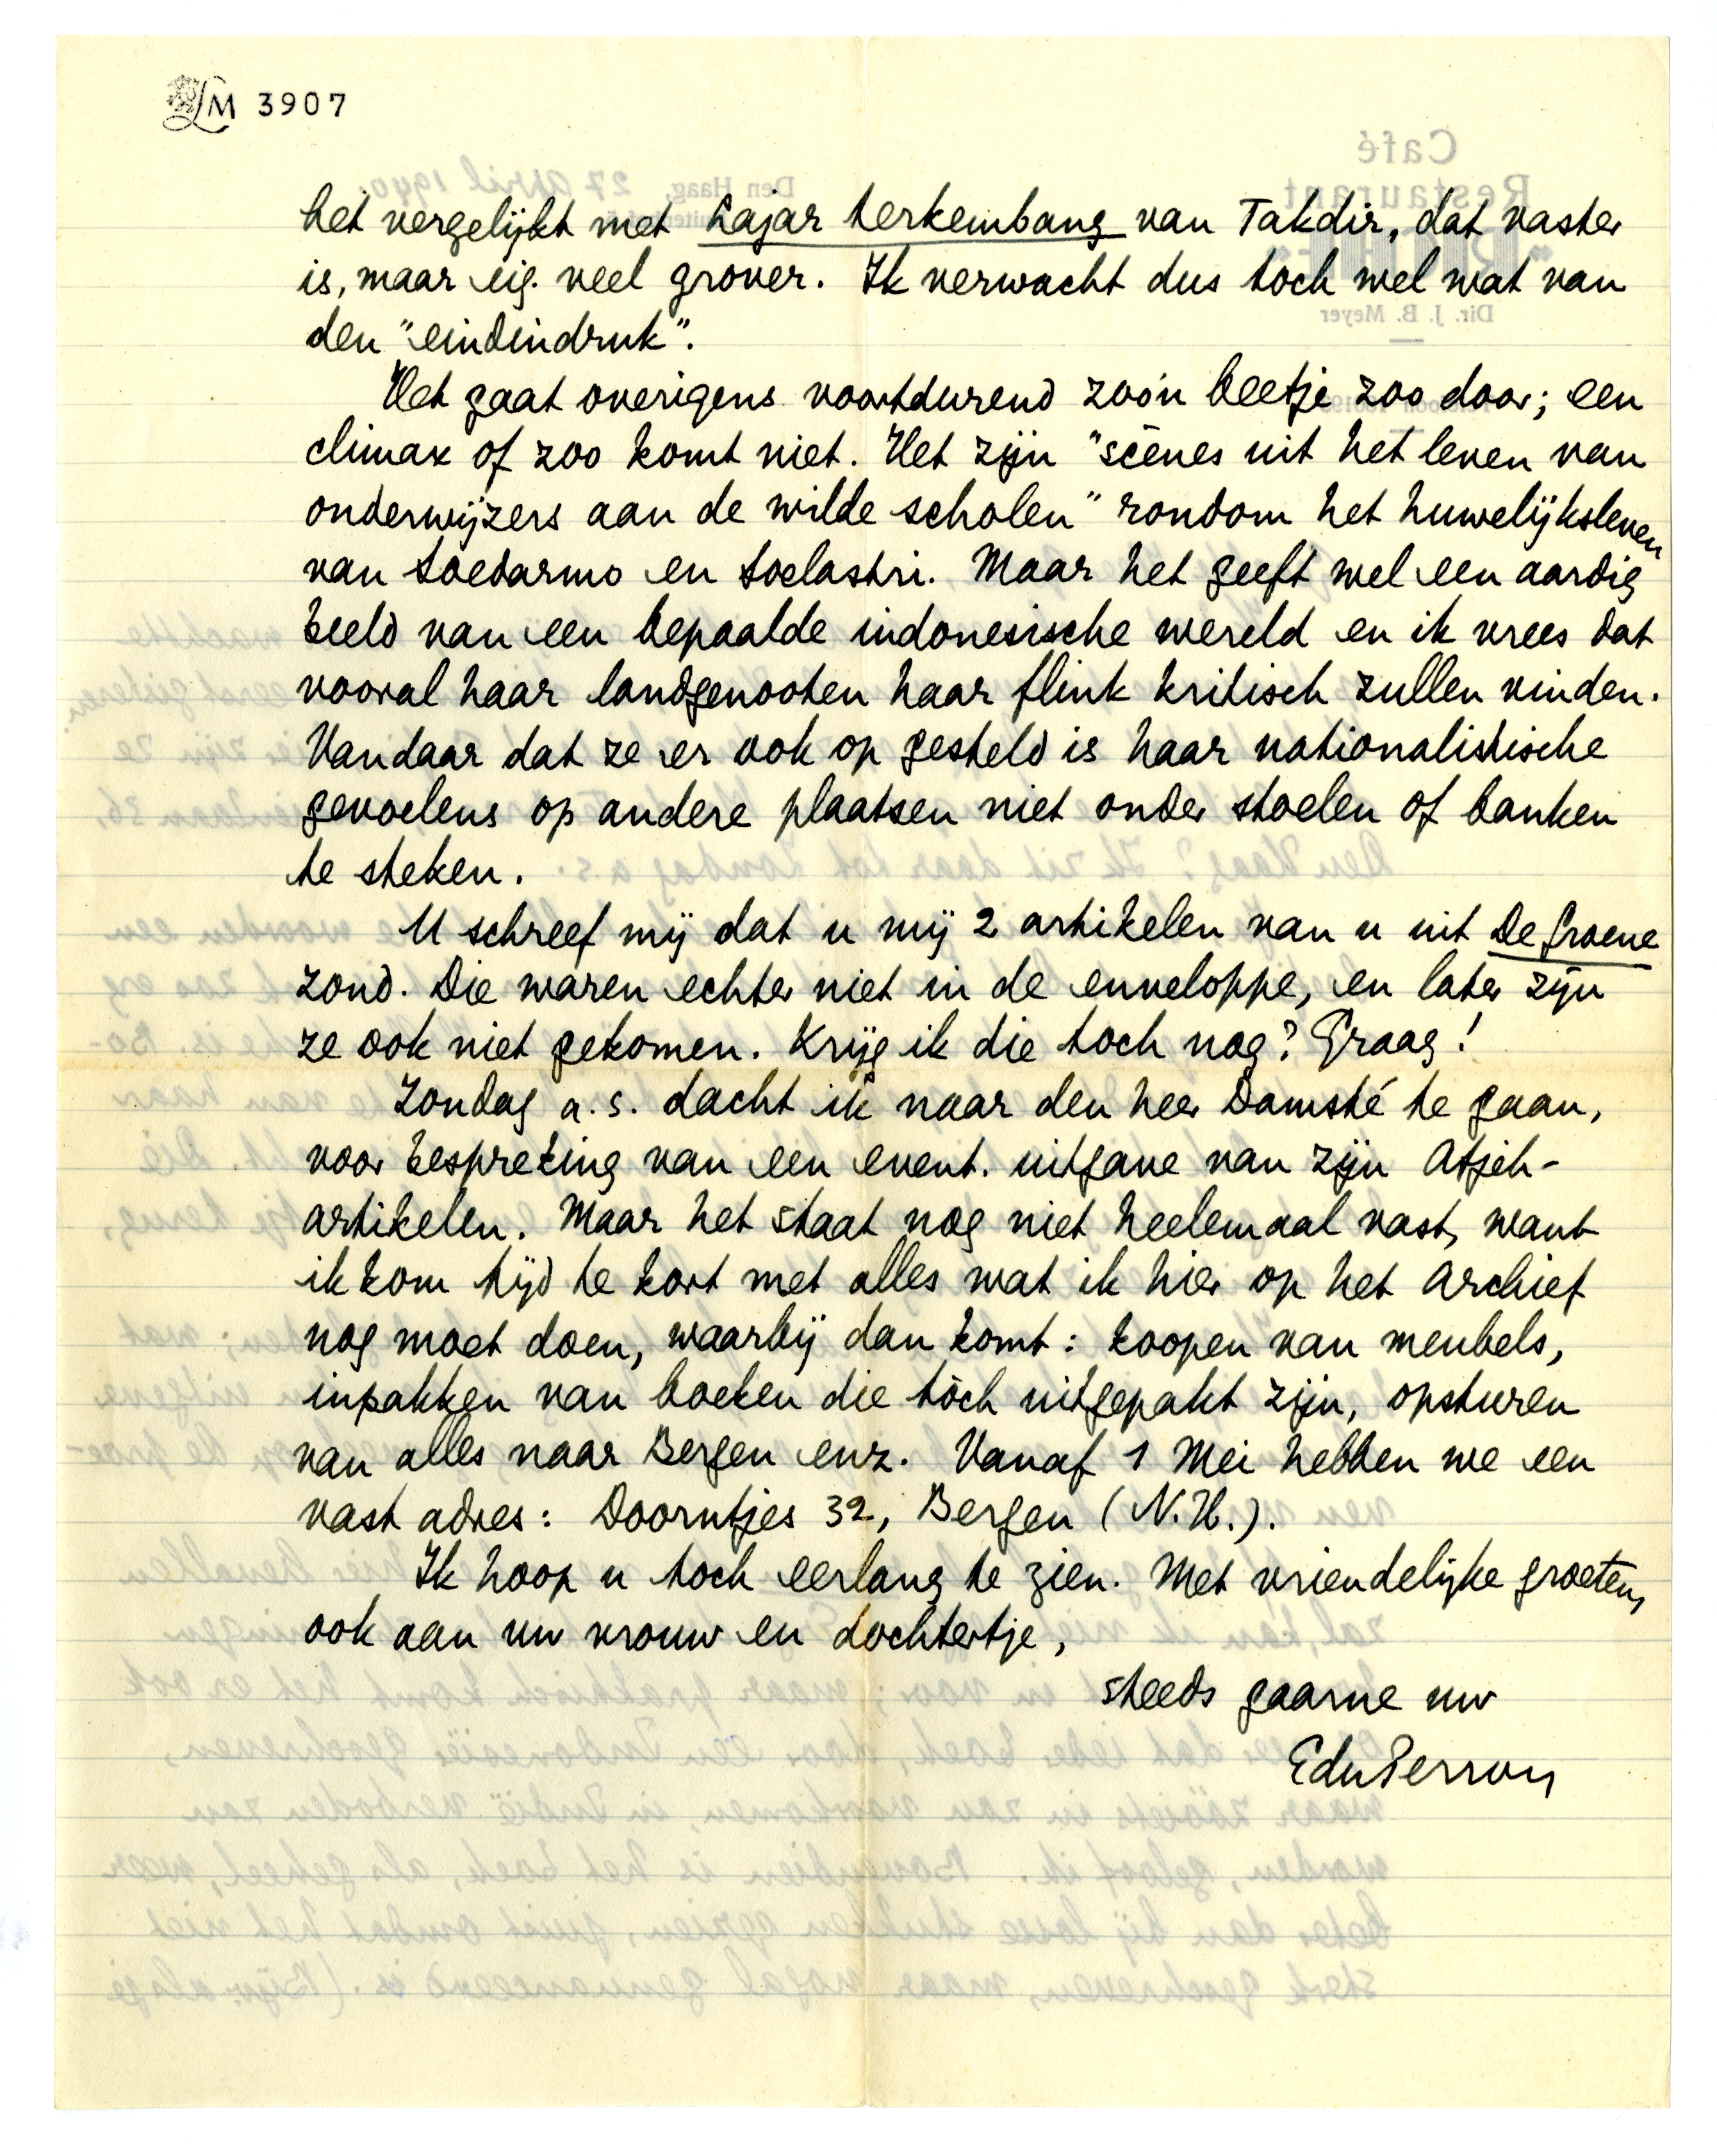 LM 3907
het vergelijkt met Lajar terkembang van Takdir, dat vaster
is, maar eig. veel grover. Ik verwacht dus toch wel wat van
den "eindindruk".
Het gaat overigens voortdurend zoo'n beetje zoo door; een
climax of zoo komt niet. Het zijn "scènes uit het leven van
onderwijzers aan de wilde scholen" rondom het huwelijksleven
van Soedarmo en Soelastri. Maar het geeft wel een aardig
beeld van een bepaalde indonesische wereld en ik vrees dat
vooral haar landgenooten haar flink kritisch zullen vinden.
Vandaar dat ze er ook op gesteld is haar nationalistische
gevoelens op andere plaatsen niet onder stoelen of banken
te steken.
U schreef mij dat u mij 2 artikelen van u uit De Groene
zond. Die waren echter niet in de enveloppe, en later zijn
ze ook niet gekomen. Krijg ik die toch nog? Graag!
Zondag a.s. dacht ik naar den heer Damsté te gaan,
voor bespreking van een event. uitgave van zijn Atjeh-
artikelen. Maar het staat nog niet heelemaal vast, want
ik kom tijd te kort met alles wat ik hier op het Archief
nog moet doen, waarbij dan komt: koopen van meubels,
inpakken van boeken die tòch uitgepakt zijn, opsturen
van alles naar Bergen enz. Vanaf 1 Mei hebben we een
vast adres: Doorntjes 32, Bergen (N.H.).
Ik hoop u toch eerlang te zien. Met vriendelijke groeten,
ook aan uw vrouw en dochtertje,
steeds gaarne uw
EduPerron